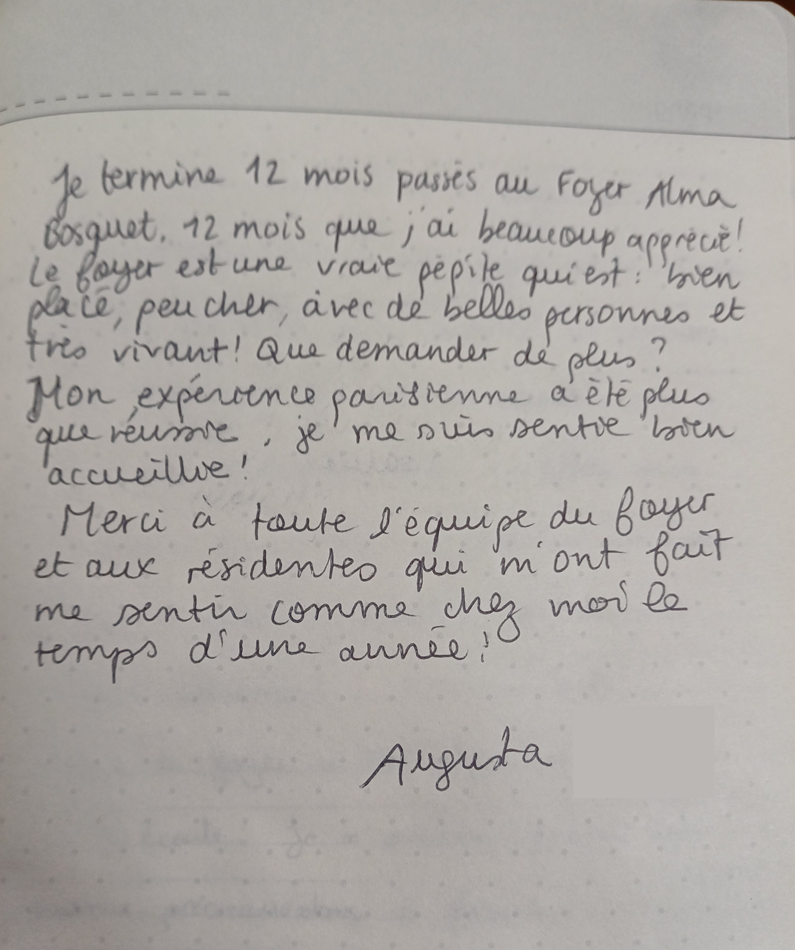 Je termine 12 mois passés au Foyer Alma
Bosquet. 12 mois que j'ai beaucoup apprécié!
Le foyer est une vraie pépite qui est : bien
placé, peu cher, avec de belles personnes et
très vivant! Que demander de plus?
Mon expérience parisienne a été plus
que réussie, je me suis sentie bien
accueillie!
Merci à toute l'équipe du foyer
et aux résidentes qui m'ont fait
me sentir comme chez moi le
temps d'une année!
Augusta